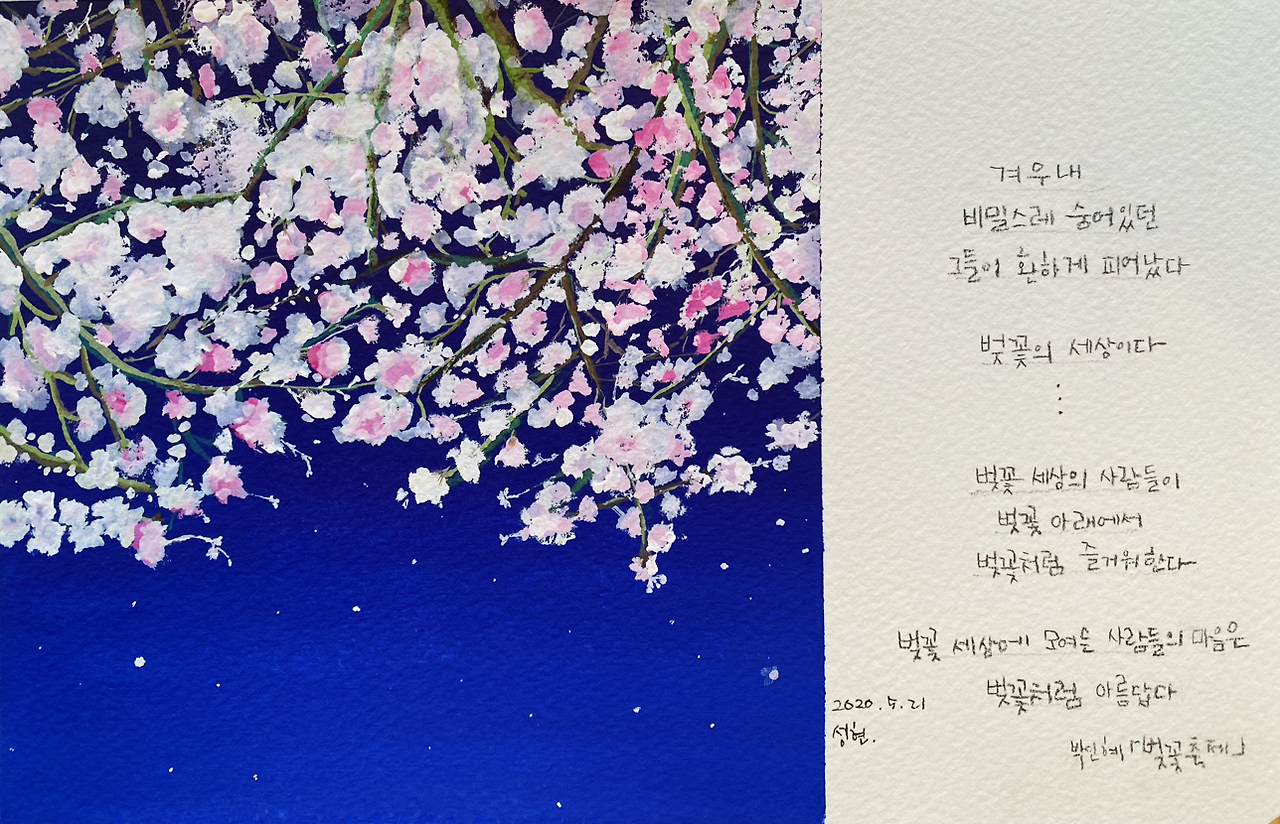 겨우내
비밀스레 숨어있던
그들이 환하게 피어났다
벚꽃의 세상이다
⋮
벚꽃 세상의 사람들이
벚꽃 아래에서
벚꽃처럼 즐거워한다
벚꽃 세상에 모여든 사람들의 마음은
벚꽃처럼 아름답다
2020.5.21
성현.
박인혜「벚꽃축제」